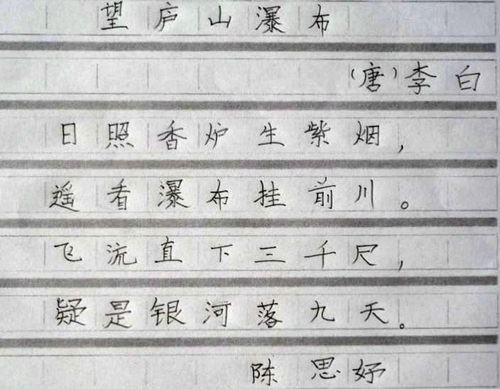 望庐山瀑布
(唐)李白
日照香炉生紫烟,
遥看瀑布挂前川。
飞流直下三千尺,
疑是银河落九天。
陈思妤